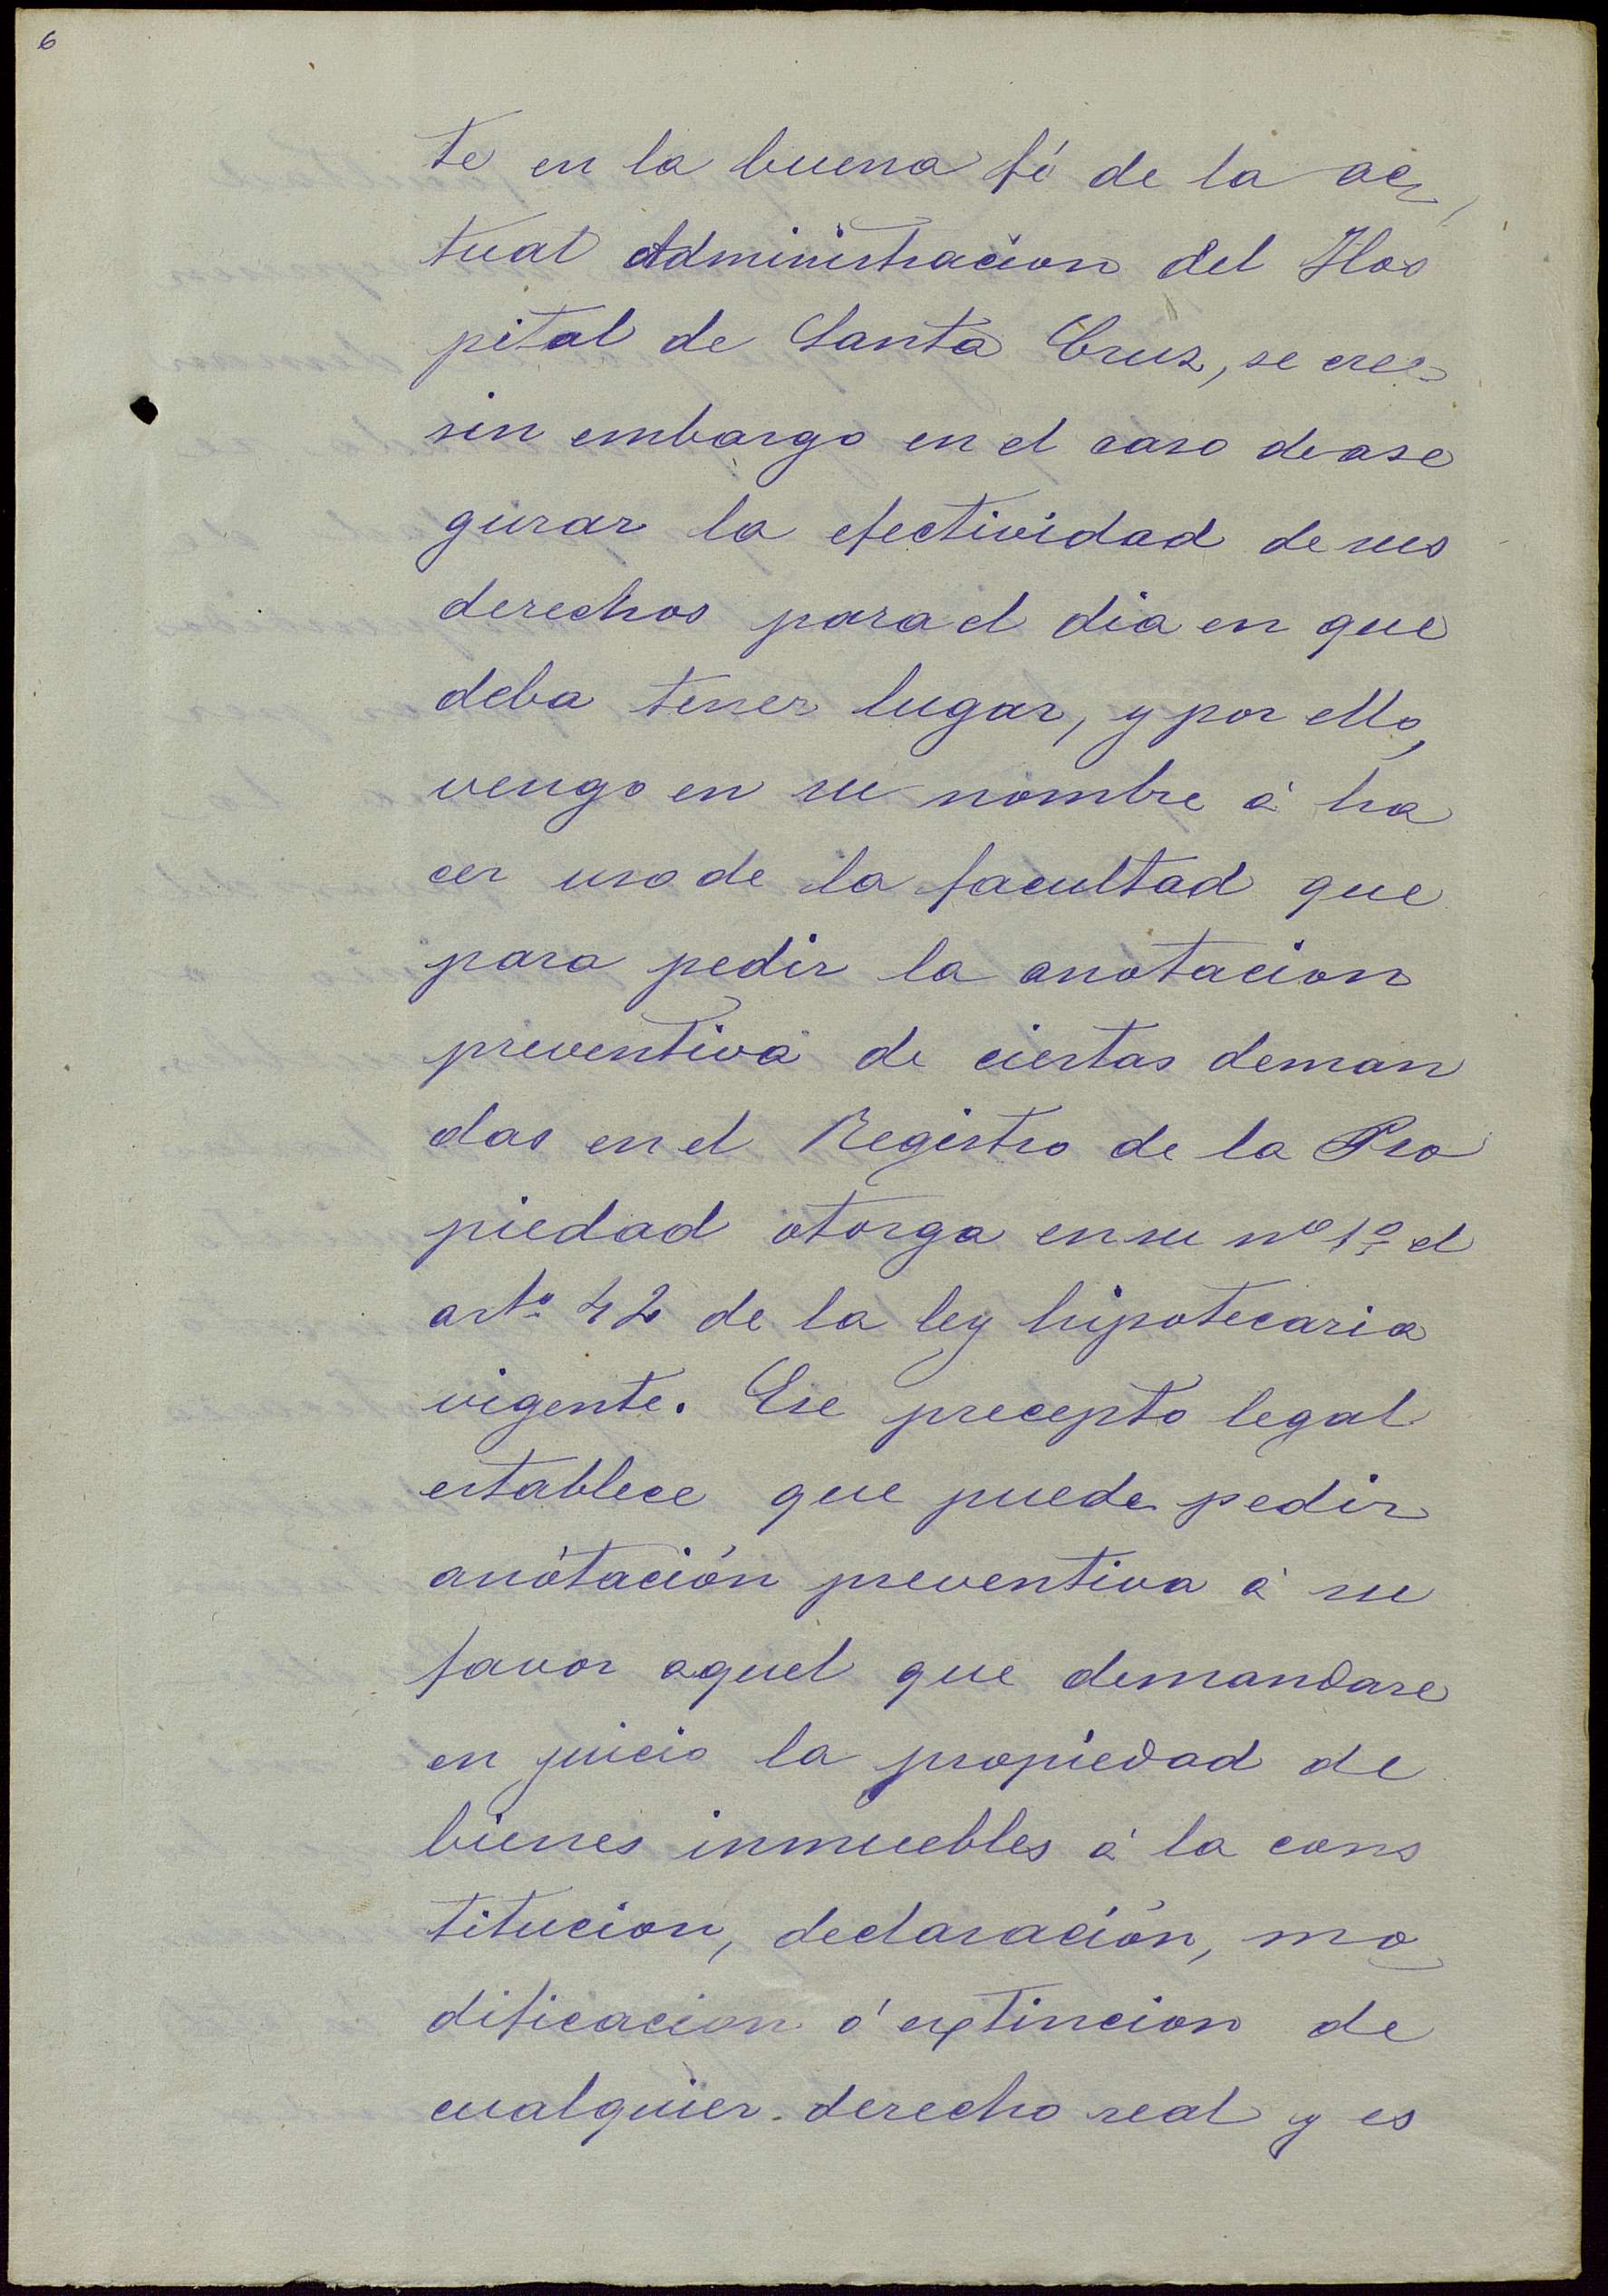 6
te en la buena fé de la ac
tual Administracion del Hos
pital de Santa Cruz, se cree
sin embargo en el caso de ase
gurar la efectividad de sus
derechos para el dia en que
deba tener lugar, y por ello,
vengo en su nombre á ha
cer uso de la facultad que
para pedir la anotacion
preventiva de ciertas deman
das en el Registro de la Pro
piedad otorga en su nº 1º el
artº 42 de la ley hipotecaria
vigente. Ese precepto legal
establece que puede pedir
anótación preventiva á su
favor aquel que demandare
en juicio la propiedad de
bienes inmuebles á la cons
titucion, declaración, mo
dificacion ó extincion de
cualquier derecho real y es